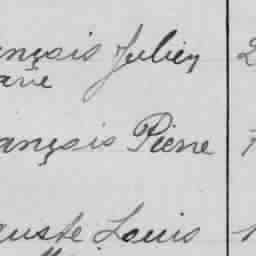 ançois Julien 2
ançois Pierre
guste Louis